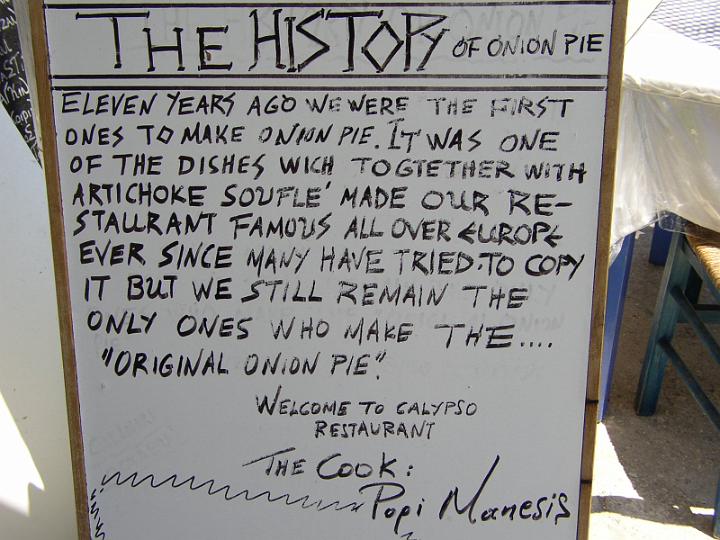 THE HISTORY OF ONION PIE
ELEVEN YEARS AGO WE WERE THE FIRST
ONES TO MAKE ONION PIE. IT WAS ONE
OF THE DISHES WICH TOGTETHER WITH
ARTICHOKE SOUFLE' MADE OUR RE-
STAURANT FAMOUS ALL OVER EUROPE
EVER SINCE MANY HAVE TRIED.TO COPY
IT BUT WE STILL REMAIN THE
ONLY ONES WHO MAKE THE....
"ORIGINAL ONION PIE".
WELCOME TO CALYPSO
RESTAURANT
THE COOK:
Popi Manesis